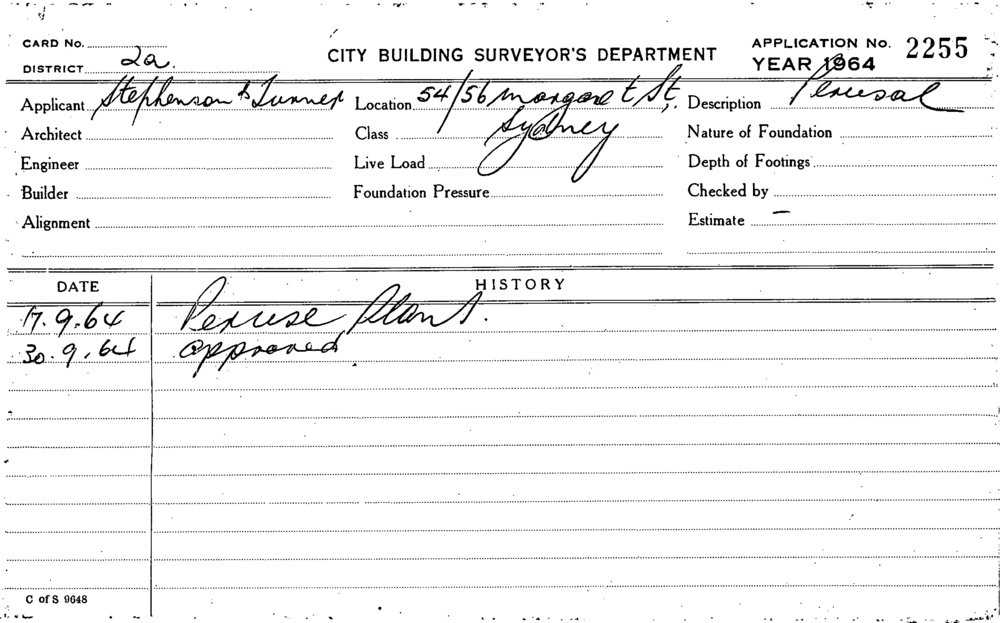 CARD No. CITY BUILDING SURVEYOR'S DEPARTMENT APPLICATION No. 2255
DISTRICT 2a. YEAR 1964
Applicant Stephenson & Turner Location 54/56 Margaret St, Description Perusal
Architect Class Sydney Nature of Foundation
Engineer Live Load Depth of Footings
Builder Foundation Pressure Checked by
Alignment Estimate –
DATE HISTORY
17.9.64 Peruse Plans.
30.9.64 Approved.
C of S 9648